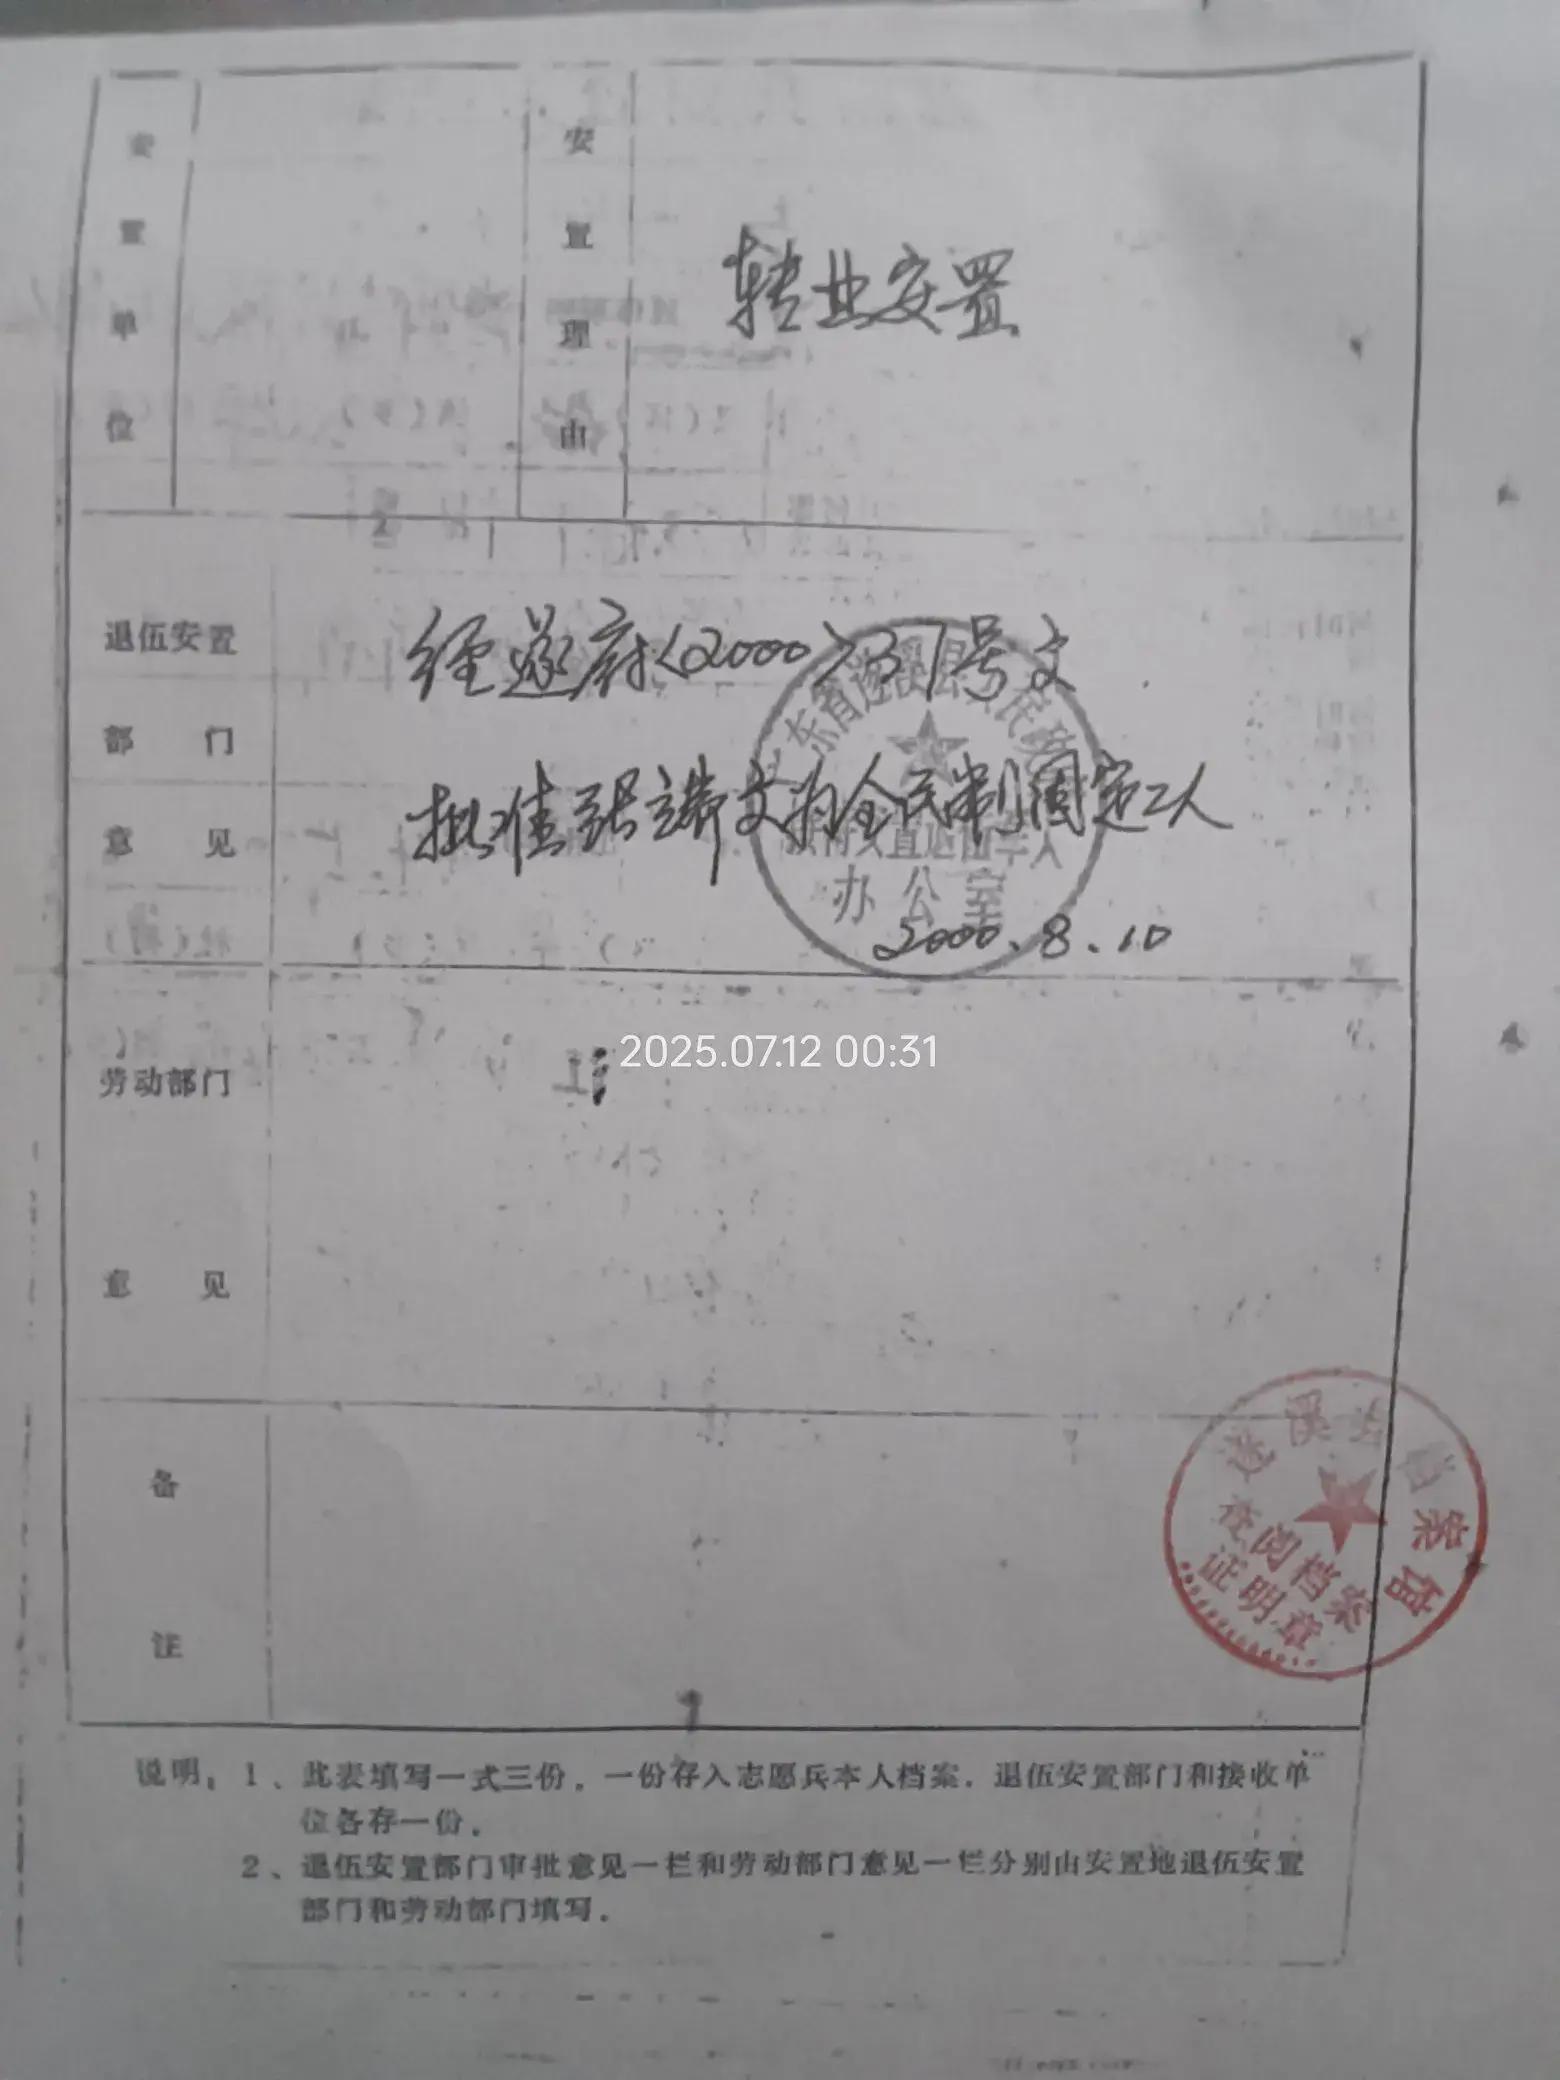 安置单位
安置理由
转业安置
退伍安置
部门
意见
经遂府<2000>37号文
批准张立耕文为全民制固定工人
东省遂溪县人民政
办公室
2000.8.10
2025.07.12 00:31
劳动部门
意见
备
注
遂溪县档案馆
查阅档案
证明章
说明：1、此表填写一式三份，一份存入志愿兵本人档案，退伍安置部门和接收单
位各存一份。
2、退伍安置部门审批意见一栏和劳动部门意见一栏分别由安置地退伍安置
部门和劳动部门填写。